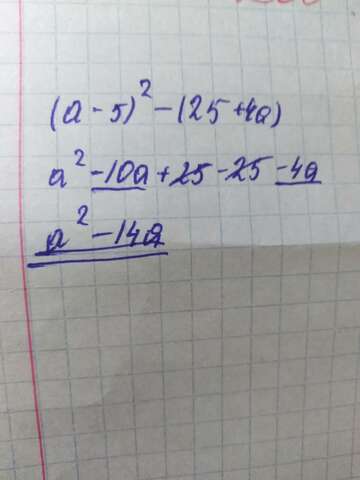 (a - 5)² - (25 + 4a)
a² - 10a + 25 - 25 - 4a
a² - 14a